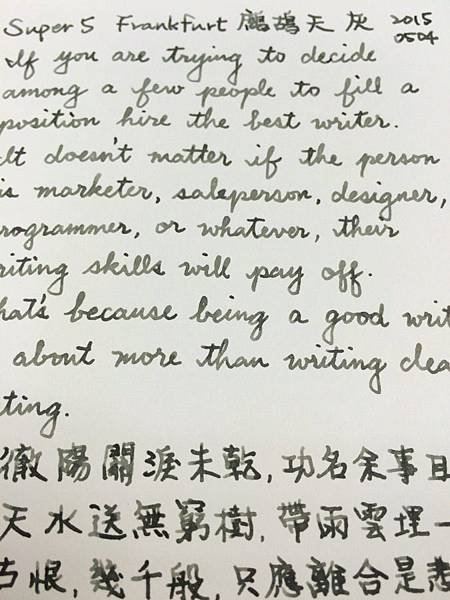 Super 5 Frankfurt 鷓鴣天 灰 2015
0504
If you are trying to decide
among a few people to fill a
position hire the best writer.
It doesn't matter if the person
is marketer, salesperson, designer,
rogrammer, or whatever, their
riting skills will pay off.
hat's because being a good writ
about more than writing clea
ting.
徹陽關淚未乾,功名余事且
天水送無窮樹,帶雨雲埋一
古恨,幾千般,只應離合是悲